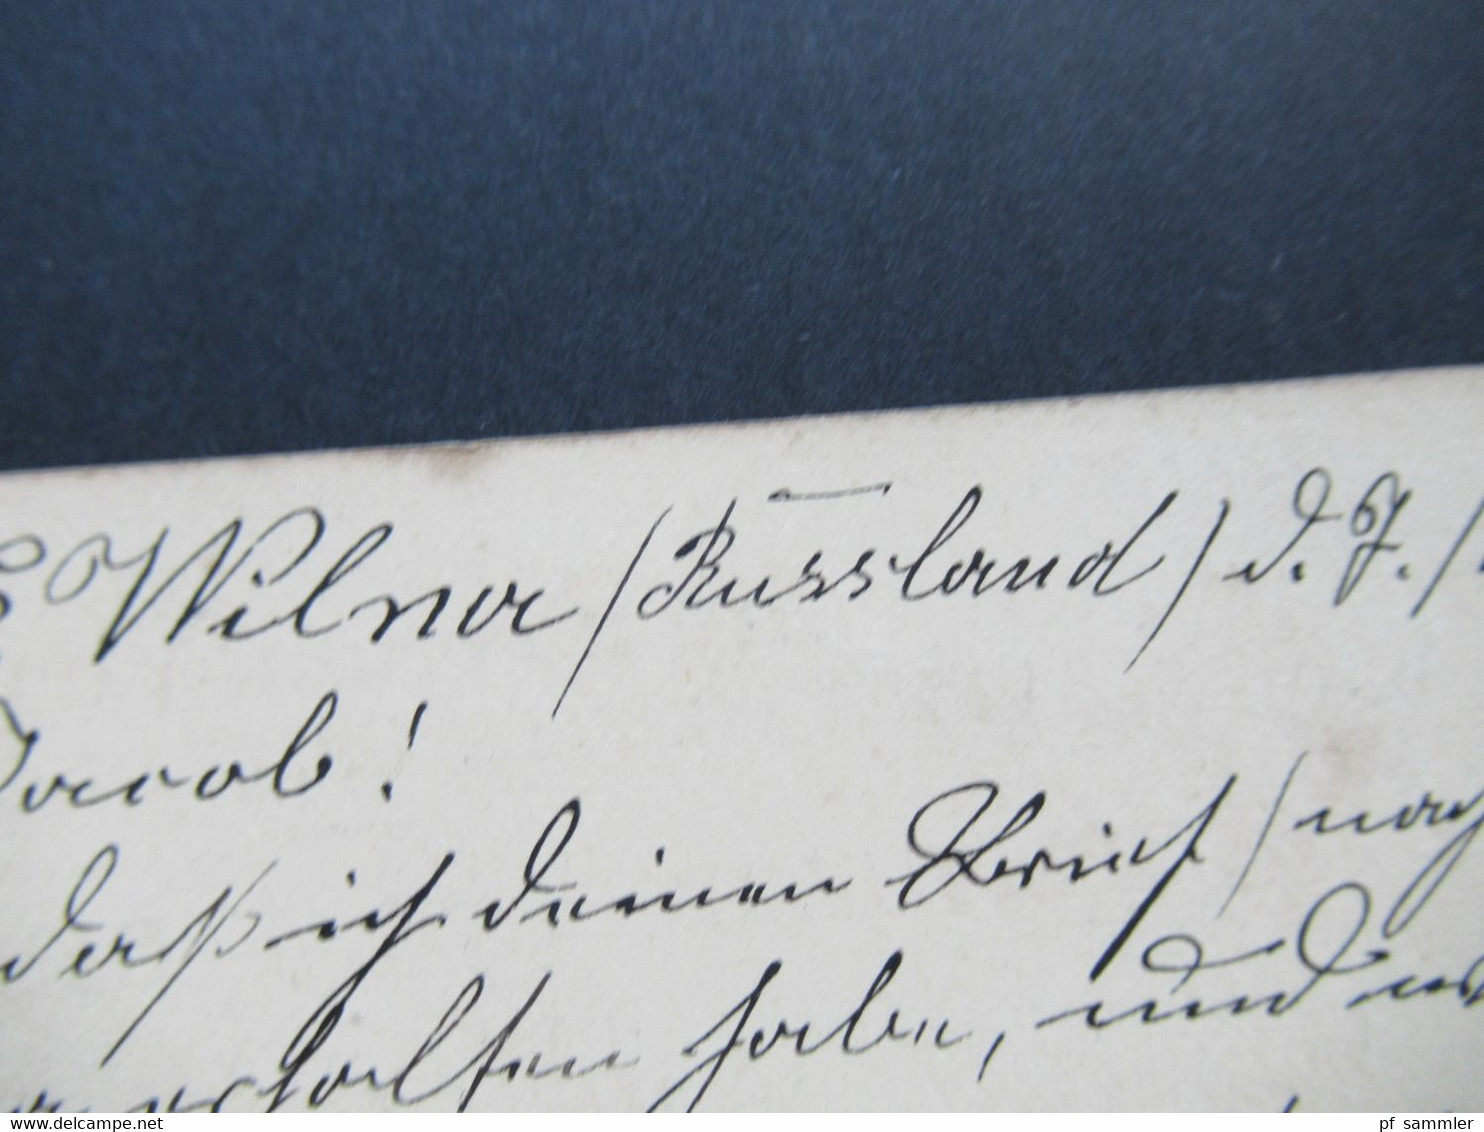 Wilna / Russland) d. 7. /
Jacob!
daß ich deinen Brief / nach
erhalten habe, und
www.delcampe.net
pf_sammler